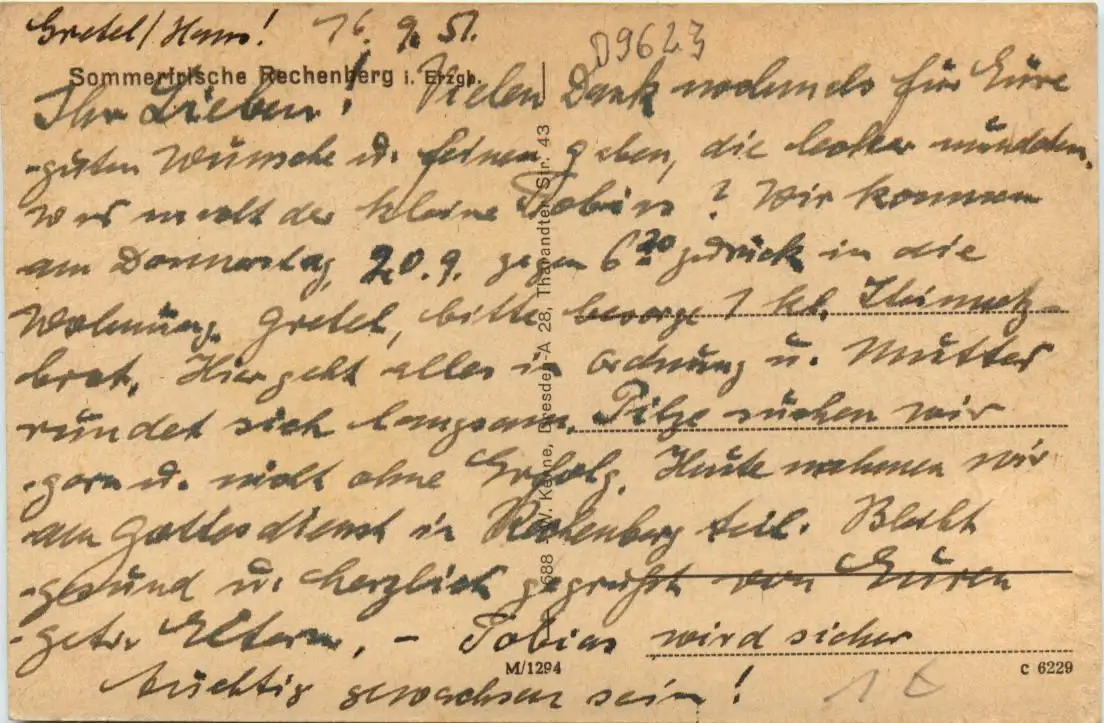 Gretel/Hans! 16. 9. 51.
09623
Sommerfrische Rechenberg i. Erzgb.
Ihr Lieben! Vielen Dank nochmals für Eure
guten Wünsche u. feinen gaben, die lecker mundeten.
Was macht der kleine Tobias? Wir kommen
am Donnerstag, 20.9. gegen 6 20 zurück in die
Wohnung. Gretel, bitte besorge 1 kl.
brot. Hier geht alles in Ordnung u. Mutter
rundet sich langsam. Pilze suchen wir
gern u. nicht ohne Erfolg. Heute nahmen wir
am Gottesdienst in Rechenberg teil. Bleibt
gesund u. herzlich gegrüßt von Euren
getr. Eltern, – Tobias wird sicher
tüchtig gewachsen sein!
1688 W. Kenne, Dresden-A 28, Tharandter Str. 43
M/1294
C 6229
1 €